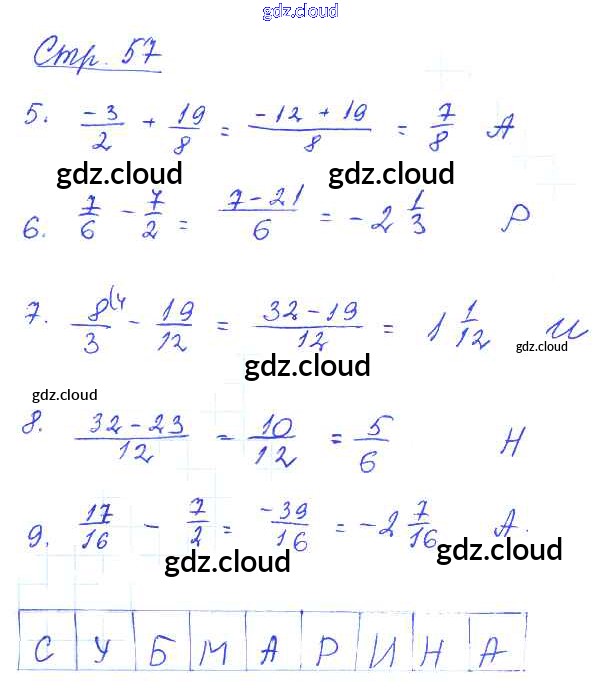 gdz.cloud
Стр. 57
5. -3/2 + 19/8 = (-12 + 19)/8 = 7/8 А
gdz.cloud gdz.cloud
6. 7/6 - 7/2 = (7 - 21)/6 = -2 1/3 Р
7. 8(4/3 - 19/12 = (32 - 19)/12 = 1 1/12 И
gdz.cloud gdz.cloud
gdz.cloud
8. (32 - 23)/12 = 10/12 = 5/6 Н
9. 17/16 - 7/2 = -39/16 = -2 7/16 А.
gdz.cloud gdz.cloud
С У Б М А Р И Н А